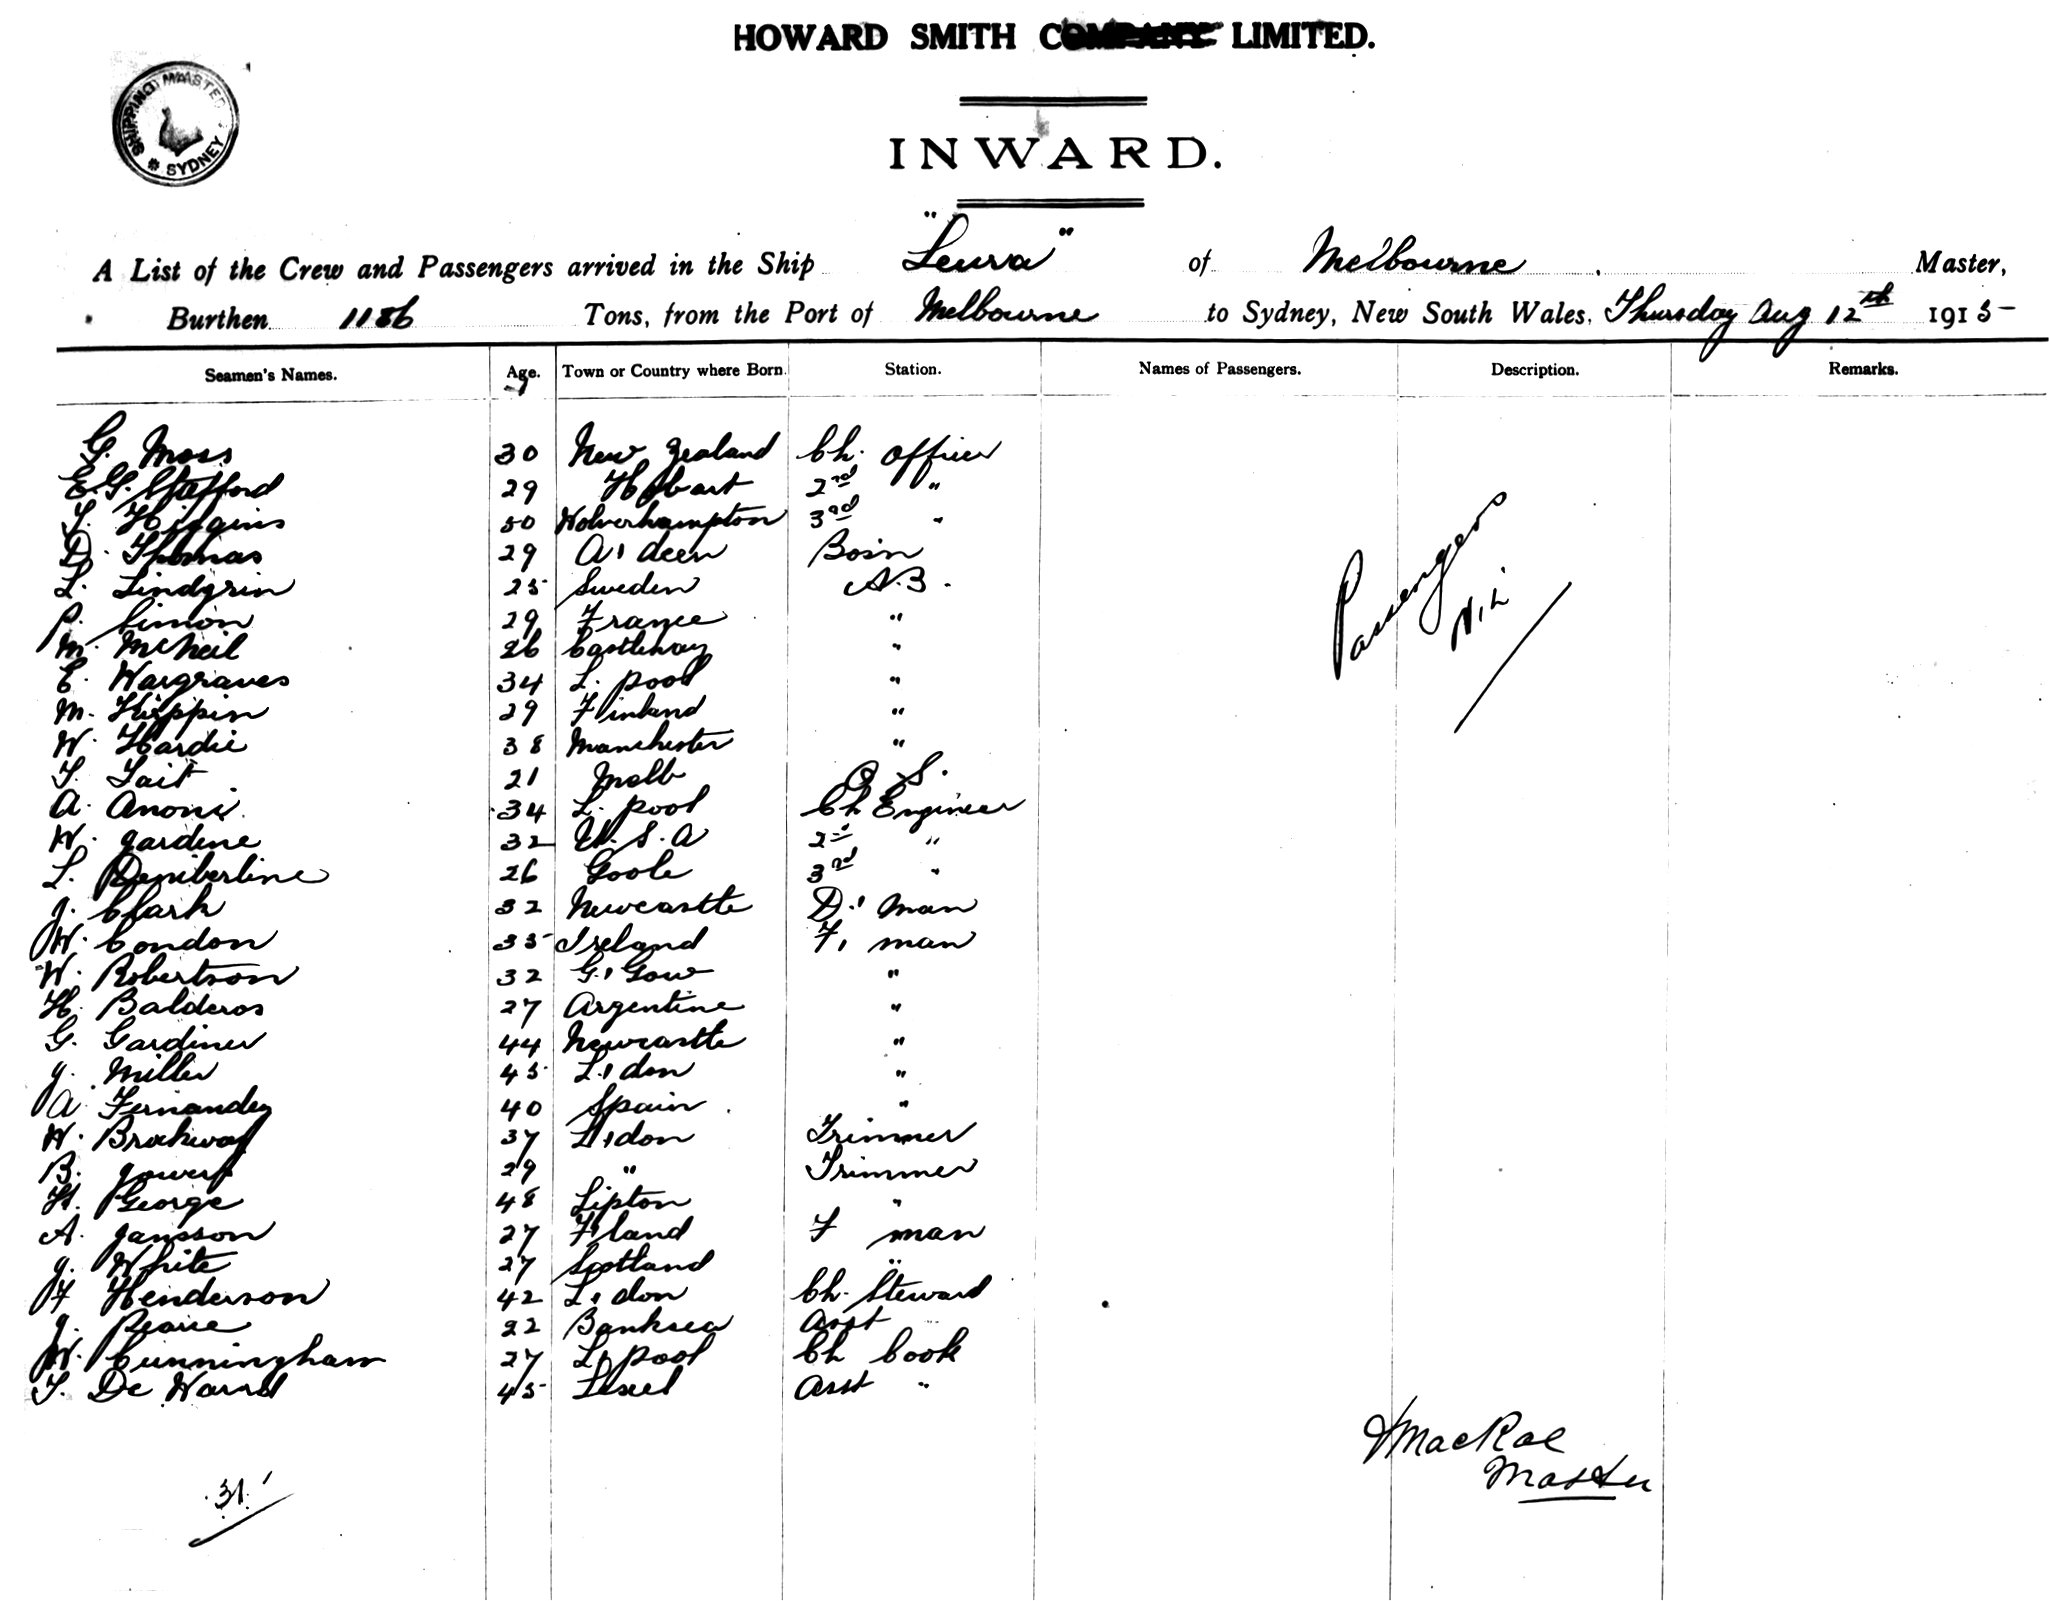 HOWARD SMITH COMPANY LIMITED.
SHIPPING MASTER SYDNEY
INWARD.
A List of the Crew and Passengers arrived in the Ship "Leura" of Melbourne Master,
Burthen 1186 Tons, from the Port of Melbourne to Sydney, New South Wales, Thursday Aug 12th 1915
Seamen's Names. Age. Town or Country where Born. Station. Names of Passengers. Description. Remarks.
G. Moss 30 New Zealand Ch. Officer
E.G. Stafford 29 Hobart 2nd "
T. Higgins 50 Wolverhampton 3rd "
D. Thomas 29 A'deen Bosn
L. Lindgrin 25 Sweden A.B.
P. Simon 29 France "
M. McNeil 26 Castlebay "
E. Wargraves 34 L.pool "
M. 29 Finland "
W. Hardie 38 Manchester "
T. Tait 21 Melb O.S.
A. Anoni 34 L.pool Ch Engineer
W. Jardine 32 U.S.A 2nd "
L. 26 Goole 3rd "
J. Clark 32 Newcastle D.'man
W. Condon 35 Ireland F,man
W. Robertson 32 G.'Gow "
H. Balderos 27 Argentine "
G. Gardiner 44 Newcastle "
J. Miller 45 L.'don "
A Fernandez 40 Spain "
W. Brockway 37 L'don Trimmer
B. 29 " Trimmer
H. George 48 Lipton "
A. Jansson 27 F'land F man
J. White 27 Scotland "
F Henderson 42 L'don Ch. Steward
J. Pearce 22 Banksea Asst
W. Cunningham 27 L'pool Ch Cook
T. De Waard 45 Asst "
Passengers
Nil
MacRae
Master
31